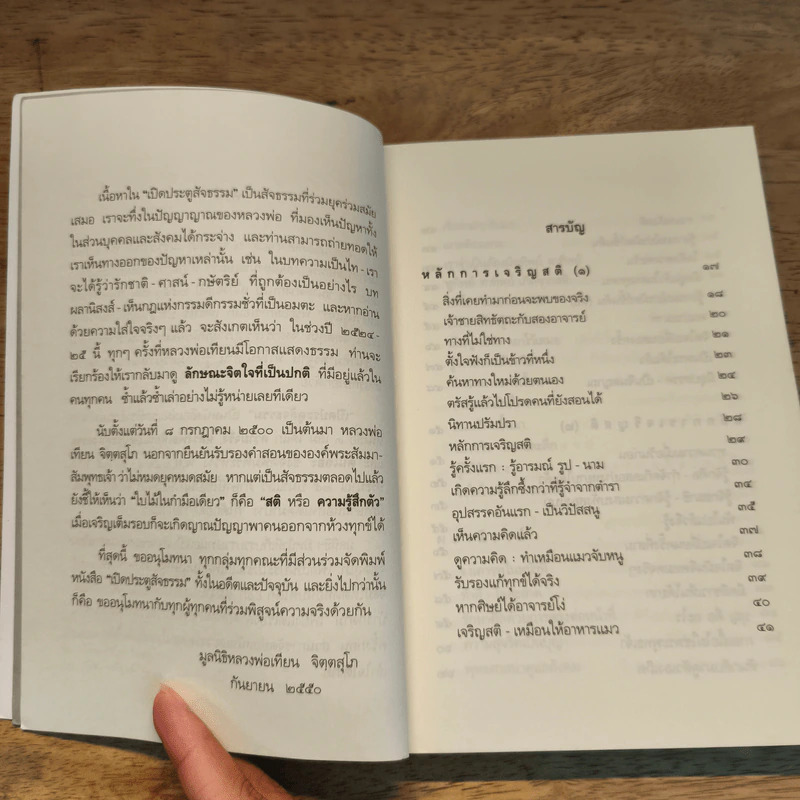 เนื้อหาใน "เปิดประตูสัจธรรม" เป็นสัจธรรมที่ร่วมยุคร่วมสมัย
เสมอ เราจะทึ่งในปัญญาญาณของหลวงพ่อ ที่มองเห็นปัญหาทั้ง
ในส่วนบุคคลและสังคมได้กระจ่าง และท่านสามารถถ่ายทอดให้
เราเห็นทางออกของปัญหาเหล่านั้น เช่น ในบทความเป็นไท - เรา
จะได้รู้ว่ารักชาติ - ศาสน์ - กษัตริย์ ที่ถูกต้องเป็นอย่างไร บท
ผลานิสงส์ - เห็นกฎแห่งกรรมดีกรรมชั่วที่เป็นอมตะ และหากอ่าน
ด้วยความใส่ใจจริงๆ แล้ว จะสังเกตเห็นว่า ในช่วงปี ๒๕๒๔-
๒๕ นี้ ทุกๆ ครั้งที่หลวงพ่อเทียนมีโอกาสแสดงธรรม ท่านจะ
เรียกร้องให้เรากลับมาดู ลักษณะจิตใจที่เป็นปกติ ที่มีอยู่แล้วใน
คนทุกคน ซ้ำแล้วซ้ำเล่าอย่างไม่รู้หน่ายเลยทีเดียว
นับตั้งแต่วันที่ ๘ กรกฎาคม ๒๕๐๐ เป็นต้นมา หลวงพ่อ
เทียน จิตฺตสุโภ นอกจากยืนยันรับรองคำสอนขององค์พระสัมมา-
สัมพุทธเจ้า ว่าไม่หมดยุคหมดสมัย หากแต่เป็นสัจธรรมตลอดไปแล้ว
ยังชี้ให้เห็นว่า "ใบไม้ในกำมือเดียว" ก็คือ "สติ หรือ ความรู้สึกตัว"
เมื่อเจริญเต็มรอบก็จะเกิดญาณปัญญาพาคนออกจากห้วงทุกข์ได้
ที่สุดนี้ ขออนุโมทนา ทุกกลุ่มทุกคณะที่มีส่วนร่วมจัดพิมพ์
หนังสือ "เปิดประตูสัจธรรม" ทั้งในอดีตและปัจจุบัน และยิ่งไปกว่านั้น
ก็คือ ขออนุโมทนากับทุกผู้ทุกคนที่ร่วมพิสูจน์ความจริงด้วยกัน
มูลนิธิหลวงพ่อเทียน จิตฺตสุโภ
กันยายน ๒๕๕๐
สารบัญ
หลักการเจริญสติ (๑) ๑๗
สิ่งที่เคยทำมาก่อนจะพบของจริง ๑๘
เจ้าชายสิทธัตถะกับสองอาจารย์ ๒๐
ทางที่ไม่ใช่ทาง ๒๑
ตั้งใจฟังก็เป็นข้าวที่หนึ่ง ๒๓
ค้นหาทางใหม่ด้วยตนเอง ๒๔
ตรัสรู้แล้วไปโปรดคนที่ยังสอนได้ ๒๖
นิทานปรัมปรา ๒๘
หลักการเจริญสติ ๒๙
รู้ครั้งแรก : รู้อารมณ์ รูป - นาม ๓๐
เกิดความรู้ลึกซึ้งกว่าที่รู้จำจากตำรา ๓๔
อุปสรรคอันแรก - เป็นวิปัสสนู ๓๕
เห็นความคิดแล้ว ๓๗
ดูความคิด : ทำเหมือนแมวจับหนู ๓๘
รับรองแก้ทุกข์ได้จริง ๓๙
หากศิษย์ได้อาจารย์โง่ ๔๐
เจริญสติ - เหมือนให้อาหารแมว ๔๑